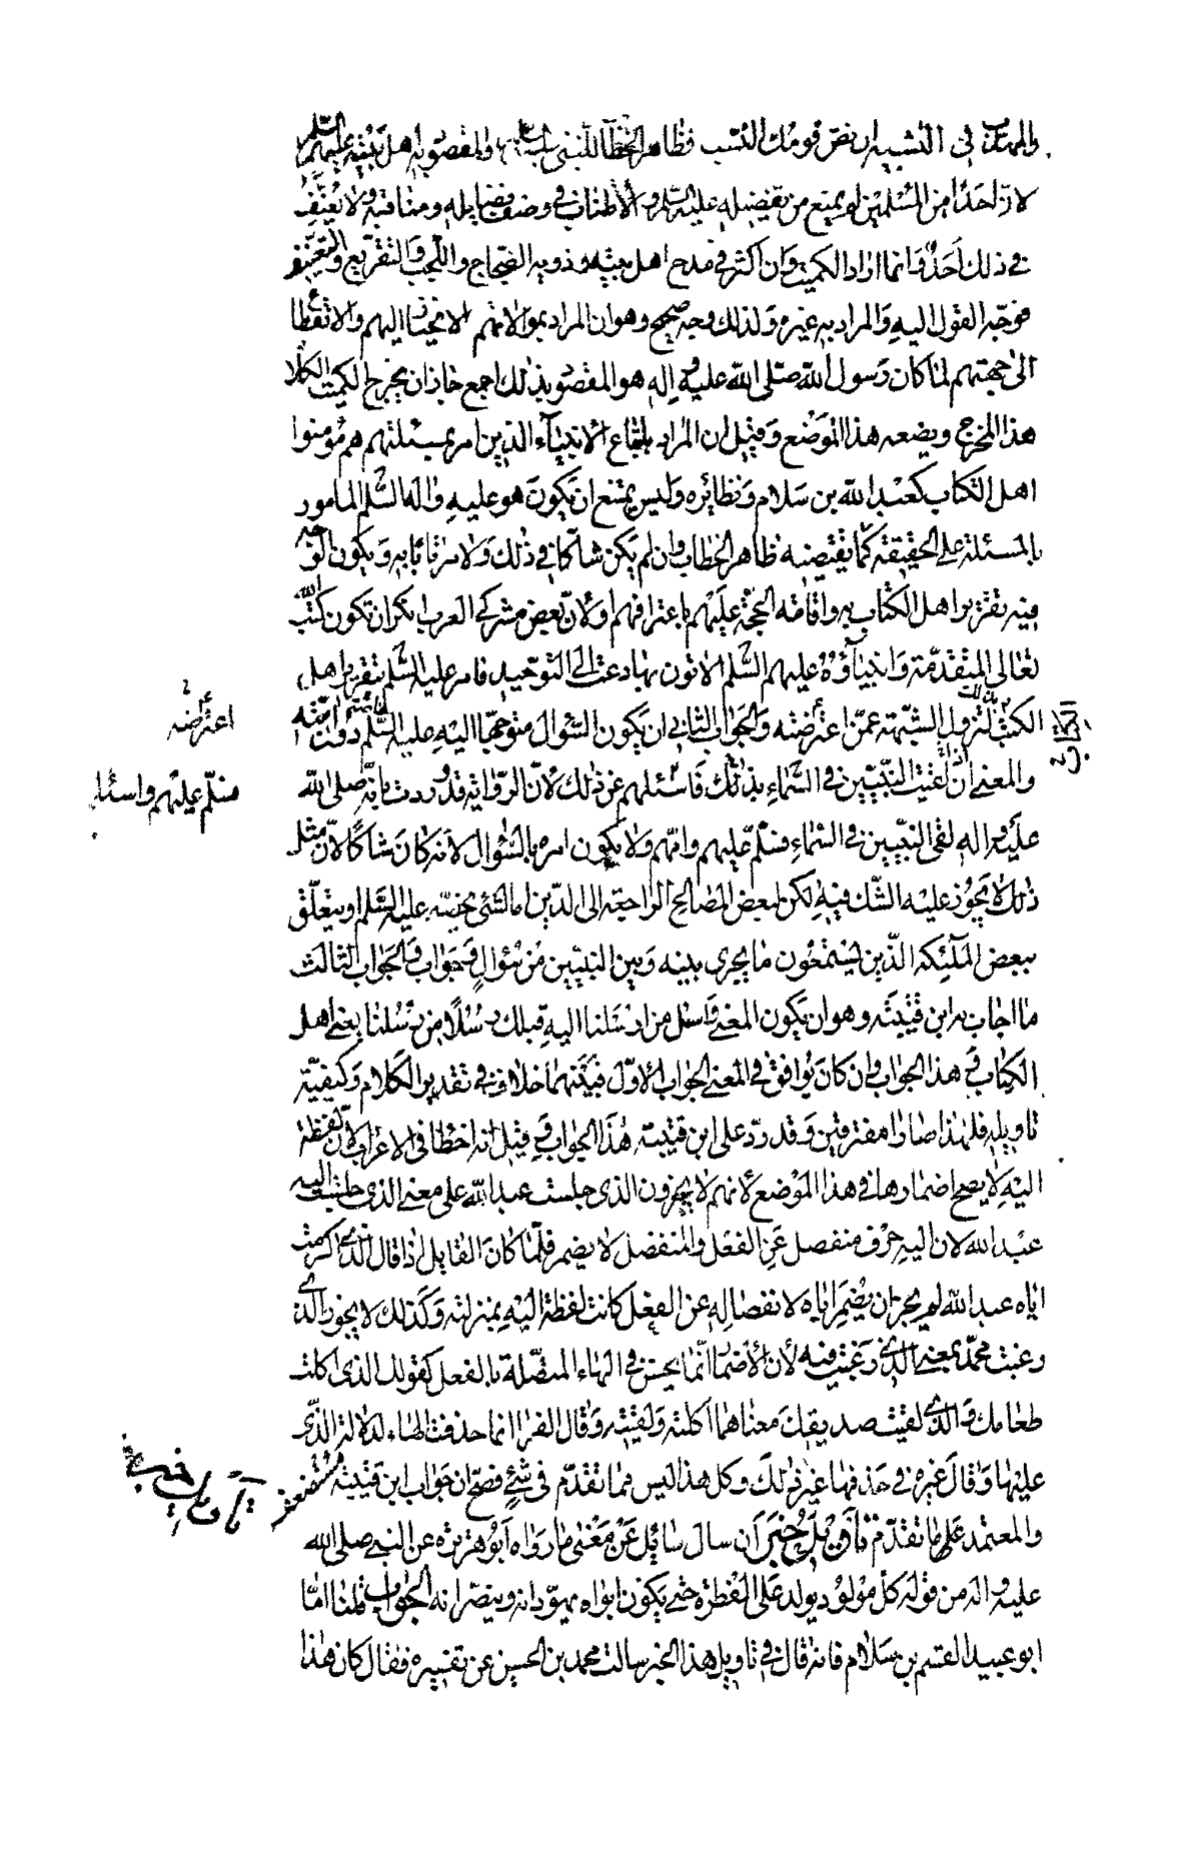 والمهذب في التشبيه ان نص قومك النسب فظاهر الخطاب للنبي والمقصود به اهل بيته عليهم السلم
لان احدا من المسلمين لم يمتنع من تفضيله عليه السلم والاطناب في وصف فضايله ومناقبه ولا يعنف
في ذلك احد وانما اراد الكميت وان اكثر في مدح اهل بيته وذويه الضجاج واللجب والتقريع والتعنيف
فوجه القول اليه والمراد به غيره ولذلك وجه صحيح وهو ان المراد بموالاتهم الانحياز اليهم والانقطاع
الى جهتهم لما كان رسول الله صلى الله عليه واله هو المقصود بذلك اجمع جاز ان يخرج الكميت الكلام
هذا المخرج ويضعه هذا الموضع وقيل ان المراد باتباع الانبياء الذين امر بمسئلتهم هم مؤمنوا
اهل الكتاب كعبد الله بن سلام ونظائره وليس يمتنع ان يكون هو عليه واله السلم المامور
بالمسئلة على الحقيقة كما يقتضيه ظاهر الخطاب وان لم يكن شاكا في ذلك ولا مرتابا به ويكون الوجه
فيه تقرير اهل الكتاب به واقامة الحجة عليهم باعترافهم او لان بعض مشركي العرب انكر ان تكون كتب الله
تعالى المتقدمة وانبياؤه عليهم السلم الاتون بها دعت الى التوحيد فامر عليه السلم بتقرير اهل
الكتب لتزول الشبهة عمن اعترضته والجواب الثاني ان يكون السؤال متوجها اليه عليه السلم دون امته
والمعنى اذا لقيت النبيين في السماء فاسئلهم عن ذلك لان الرواية قد وردت بانه صلى الله
عليه واله لقى النبيين في السماء فسلم عليهم وامهم ولا يكون امره بالسؤال لانه كان شاكا لان مثل
ذلك لا يجوز عليه الشك فيه لكن لبعض المصالح الراجعة الى الدين اما لشئ يخصه عليه السلم او يتعلق
ببعض الملئكة الذين يستمعون ما يجرى بينه وبين النبيين من سؤال وجواب والجواب الثالث
ما اجاب به ابن قتيبة وهو ان يكون المعنى واسئل من ارسلنا اليه قبلك رسلا من رسلنا يعنى اهل
الكتاب وهذا الجواب وان كان يوافق في المعنى الجواب الاول فبينهما خلاف في تقدير الكلام وكيفية
تاويله فلهذا صارا مفترقين وقد رد على ابن قتيبة هذا الجواب وقيل انه اخطا في الاعراب لان لفظة
اليه لا يصح اضمارها في هذا الموضع لانهم لا يجيزون الذى جلست عبد الله على معنى الذى جلست اليه
عبد الله لان اليه حرف منفصل عن الفعل والمنفصل لا يضمر فلما كان القايل اذا قال الذى اكرمت
اياه عبد الله لم يجز ان يضمر اياه لانفصاله عن الفعل كانت لفظة اليه بمنزلته وكذلك لا يجوز الذى
رغبت محمد بمعنى الذى رغبت فيه لان الاضمار انما يحسن في الهاء المتصلة بالفعل كقولك الذى اكلت
طعامك والذى لقيت صديقك معناهما اكلته ولقيته وقال الفرا انما حذفت الهاء لدلالة الذى
عليها وقال غيره في حذفها غير ذلك وكل هذا ليس مما تقدم في شئ فصح ان جواب ابن قتيبة مستضعف
والمعتمد على ما تقدم تاويل خبر ان سال سائل عن معنى ما رواه ابو هريرة عن النبي صلى الله
عليه واله من قوله كل مولود يولد على الفطرة حتى يكون ابواه يهودانه وينصرانه الجواب قلنا اما
ابو عبيد القسم بن سلام فانه قال في تاويل هذا الخبر سالت محمد بن الحسن عن تفسيره فقال كان هذا
اعتراضه
فسلم عليهم واسئل
تاويل خبر